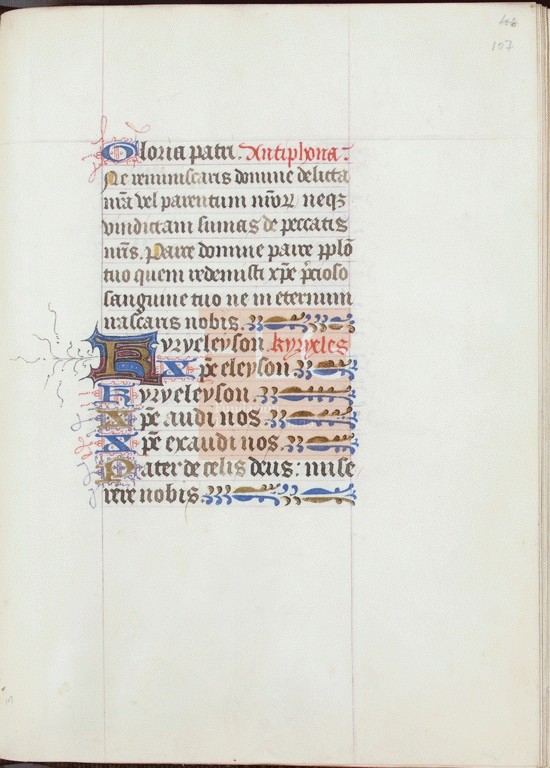 44
107
Gloria patri. Antiphona.
Ne reminiscaris domine delicta
nr̄a vel parentum nr̄oꝝ neqꝫ
vindictam sumas de peccatis
nr̄is. Parce domine parce pplō
tuo quem redemisti xp̄e p̄cioso
sanguine tuo ne in eternum
irascaris nobis.
Kyryeleyson. kyryeles
Xp̄e eleyson
Kyryeleyson.
Xp̄e audi nos.
Xp̄e exaudi nos.
Pater de celis deus: mise
rere nobis.